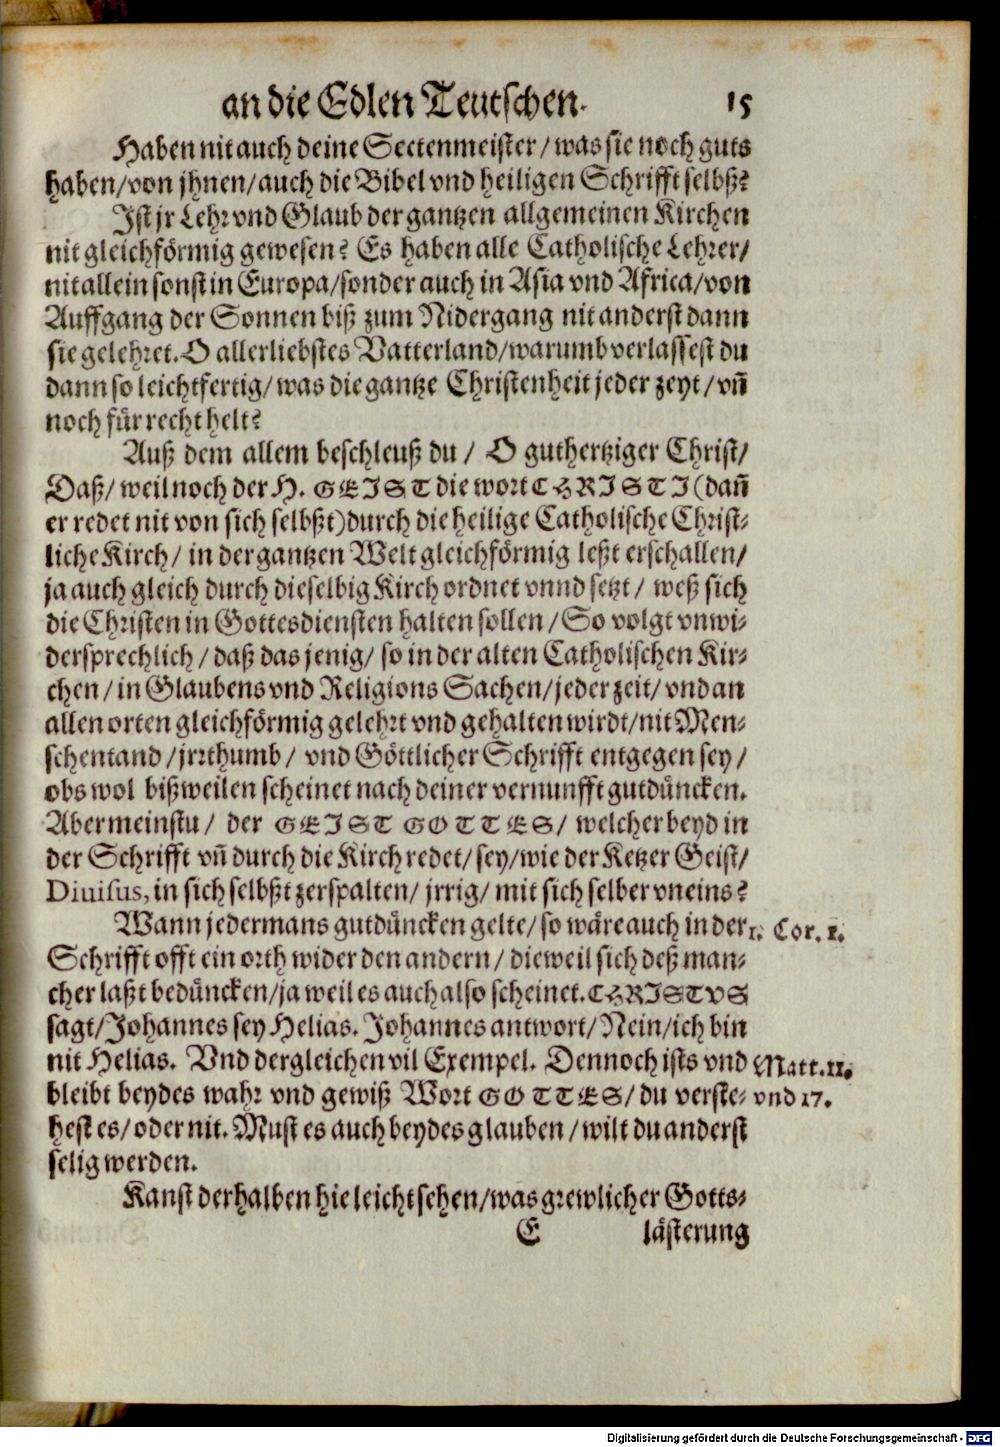 an die Edlen Teutschen. 15
Haben nit auch deine Sectenmeister / was sie noch guts
haben / von jhnen / auch die Bibel vnd heiligen Schrifft selbst?
Ist jr Lehr vnd Glaub der gantzen allgemeinen Kirchen
nit gleichförmig gewesen? Es haben alle Catholische Lehrer /
nit allein sonst in Europa / sonder auch in Asia vnd Africa / von
Auffgang der Sonnen biß zum Nidergang nit anderst dann
sie gelehret. O allerliebstes Vatterland / warumb verlassest du
dann so leichtfertig / was die gantze Christenheit jeder zeyt / vñ
noch für recht helt?
Auß dem allem beschleuß du / O guthertziger Christ /
Daß / weil noch der H. GEIST die wort CHRISTI (dañ
er redet nit von sich selbßt) durch die heilige Catholische Christ-
liche Kirch / in der gantzen Welt gleichförmig leßt erschallen /
ja auch gleich durch dieselbig Kirch ordnet vnnd setzt / weß sich
die Christen in Gottesdiensten halten sollen / So volgt vnwi-
dersprechlich / daß das jenig / so in der alten Catholischen Kir-
chen / in Glaubens vnd Religions Sachen / jeder zeit / vnd an
allen orten gleichförmig gelehrt vnd gehalten wirdt / nit Men-
schentand / jrrthumb / vnd Göttlicher Schrifft entgegen sey /
obs wol bißweilen scheinet nach deiner vernunfft gutdüncken.
Aber meinstu / der GEIST GOTTES / welcher beyd in
der Schrifft vñ durch die Kirch redet / sey / wie der Ketzer Geist /
Diuisus, in sich selbßt zerspalten / jrrig / mit sich selber vneins?
Wann jedermans gutdüncken gelte / so wäre auch in der 1. Cor. 1.
Schrifft offt ein orth wider den andern / dieweil sich deß man-
cher laßt bedüncken / ja weil es auch also scheinet. CHRISTVS
sagt / Johannes sey Helias. Johannes antwort / Nein / ich bin
nit Helias. Vnd dergleichen vil Exempel. Dennoch ists vnd Matt. 11.
bleibt beydes wahr vnd gewiß Wort GOTTES / du verste- vnd 17.
hest es / oder nit. Must es auch beydes glauben / wilt du anderst
selig werden.
Kanst derhalben hie leicht sehen / was grewlicher Gotts-
E lästerung
Digitalisierung gefördert durch die Deutsche Forschungsgemeinschaft - DFG